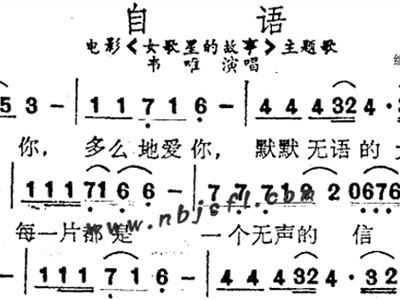 自 语
电影《女歌星的故事》主题歌
韦 唯 演唱
5 3 - | 1 1 7 1 6 - | 4 4 4 32 4 · 3
你， 多么地爱你， 默默无语的
- | 1 1 1 71 6 6 - | 7 7 7 7 2 2 0676
www.nbjsfl.com
每一片都是 一个无声的 信
- | 1 1 1 1 7 6 1 - | 4 4 4 4 32 4 · 32